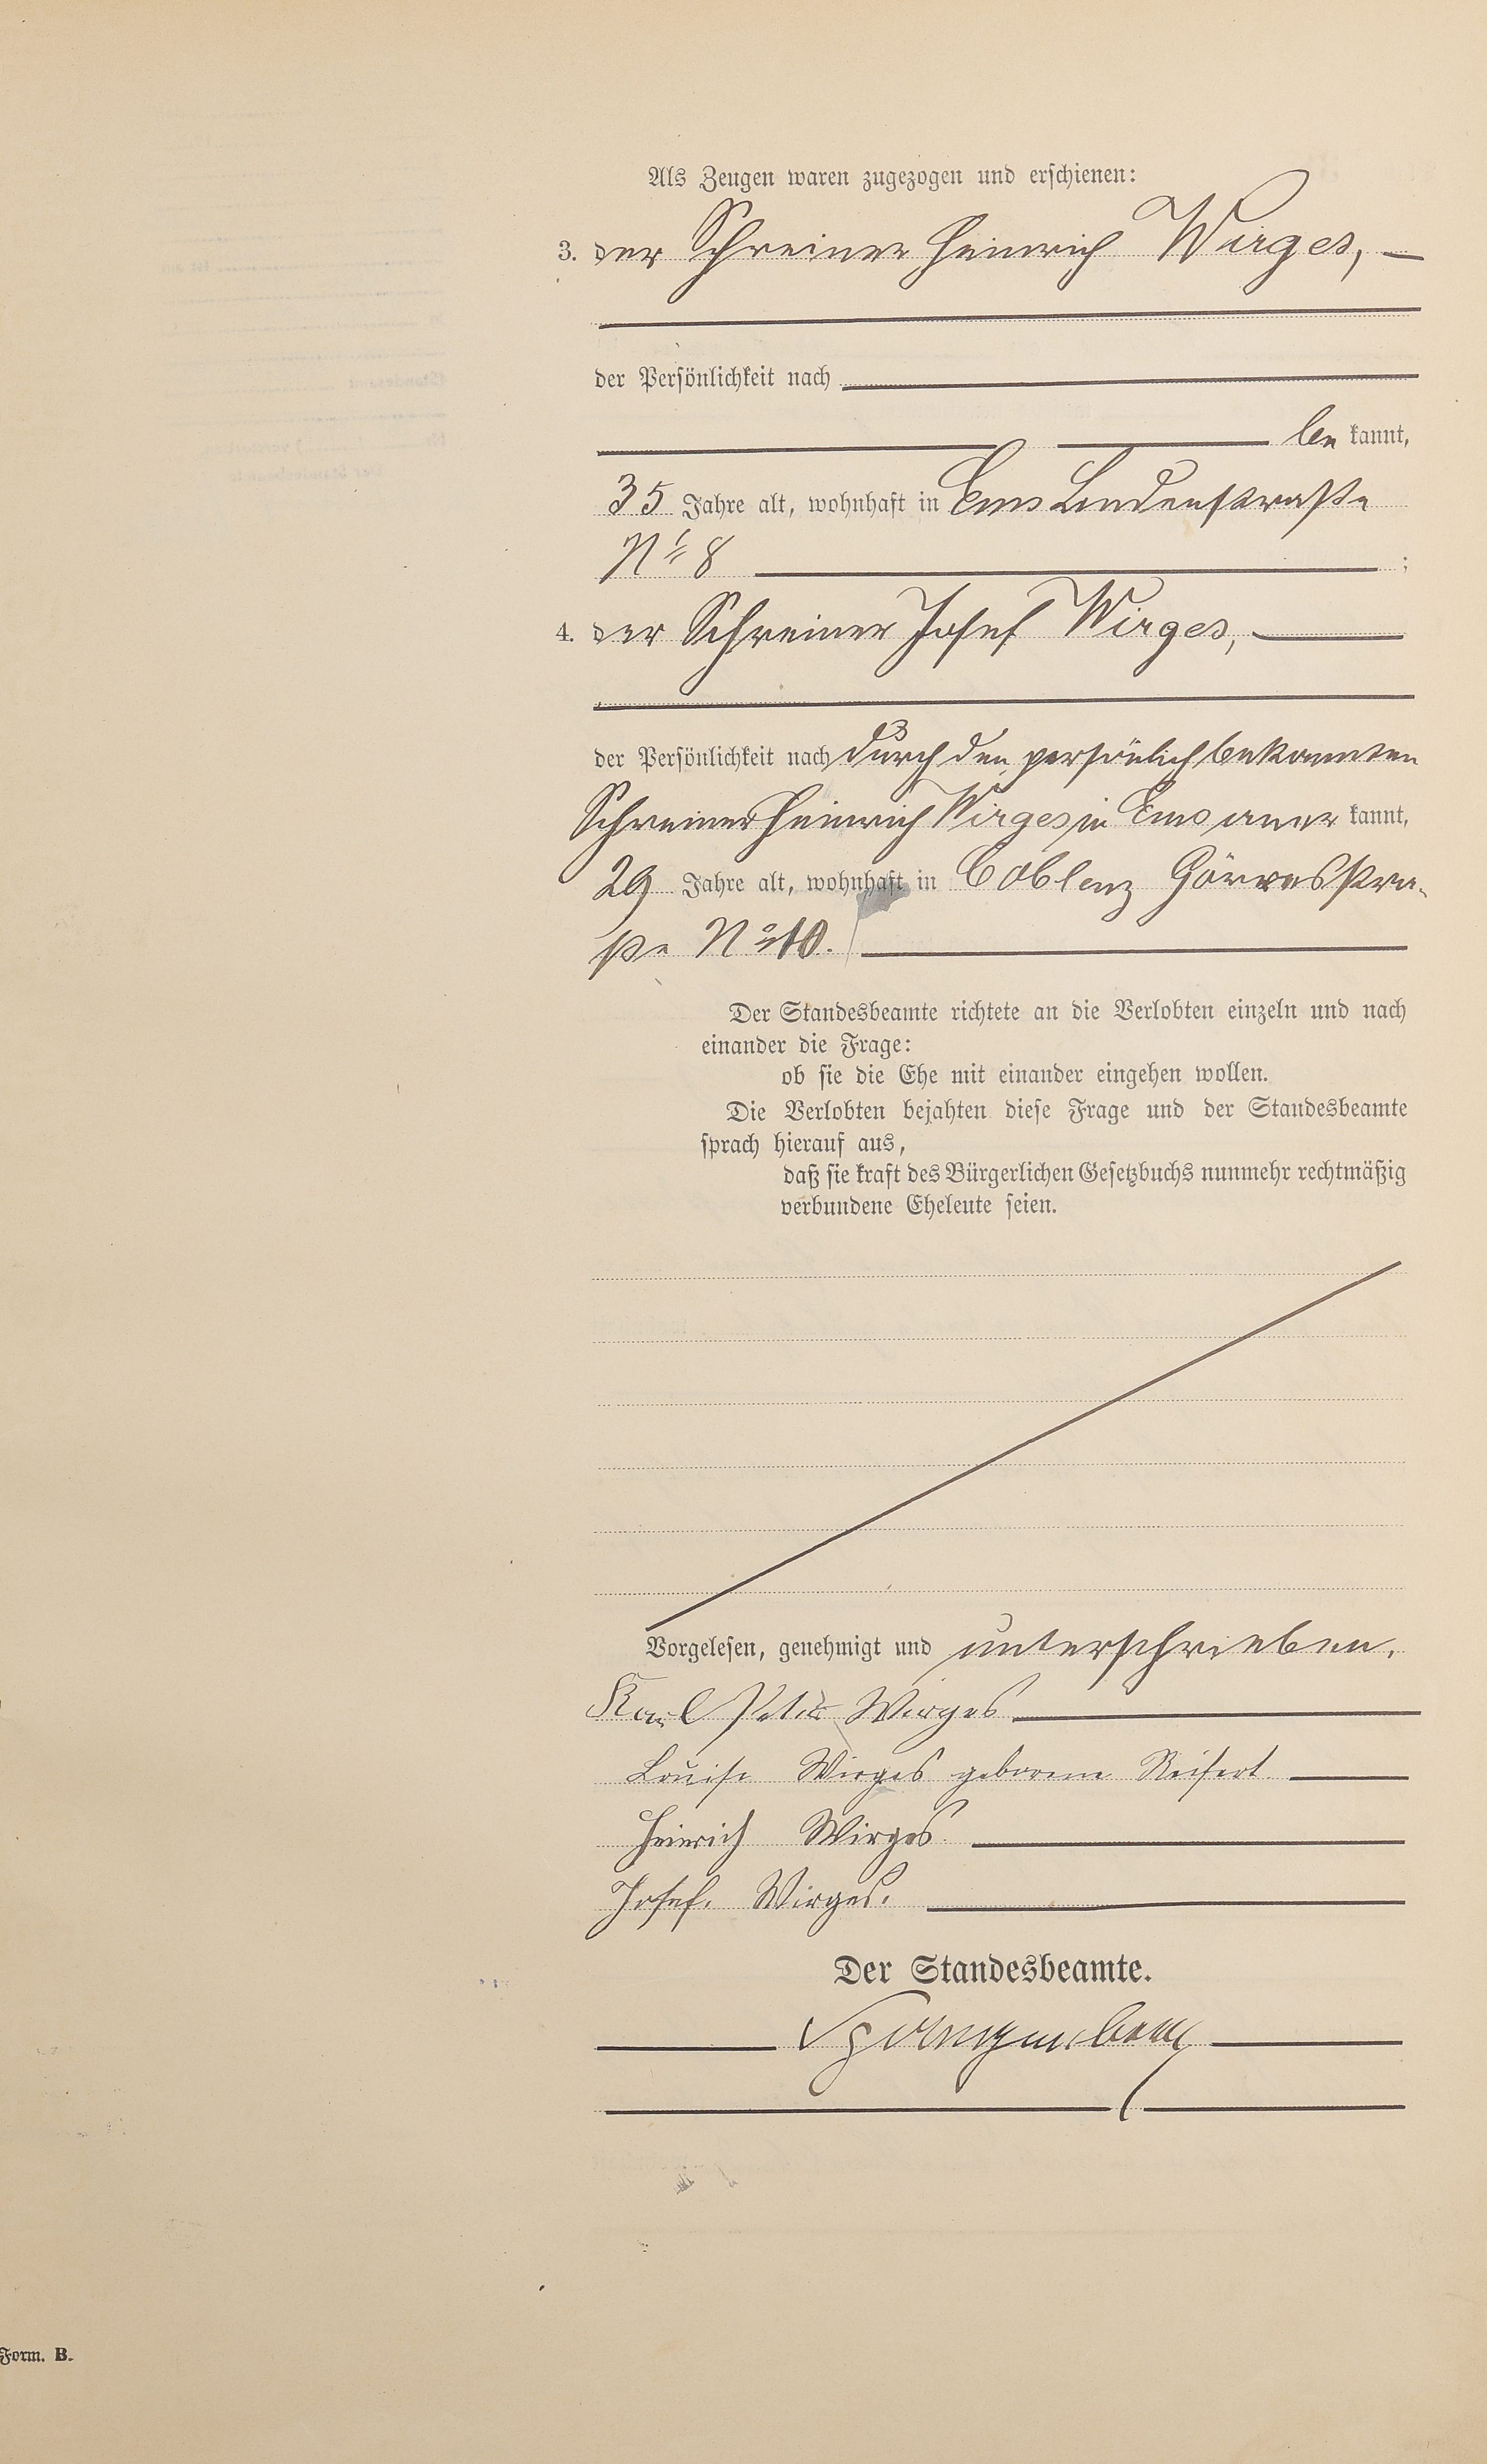 Als Zeugen waren zugezogen und erschienen:
3. der Schreiner Heinrich Wirges,
der Persönlichkeit nach
be kannt,
35 Jahre alt, wohnhaft in Ems Lindenstraße
No 8 ;
4. der Schreiner Josef Wirges,
der Persönlichkeit nach durch den persönlich bekannten
Schreiner Heinrich Wirges in Ems aner kannt,
29 Jahre alt, wohnhaft in Coblenz Görresstra-
ße No 10.
Der Standesbeamte richtete an die Verlobten einzeln und nach
einander die Frage:
ob sie die Ehe mit einander eingehen wollen.
Die Verlobten bejahten diese Frage und der Standesbeamte
sprach hierauf aus,
daß sie kraft des Bürgerlichen Gesetzbuchs nunmehr rechtmäßig
verbundene Eheleute seien.
Vorgelesen, genehmigt und unterschrieben.
Karl Peter Wirges
Louise Wirges geborene Reifert
Heinrich Wirges
Josef. Wirges.
Der Standesbeamte.
Form. B.